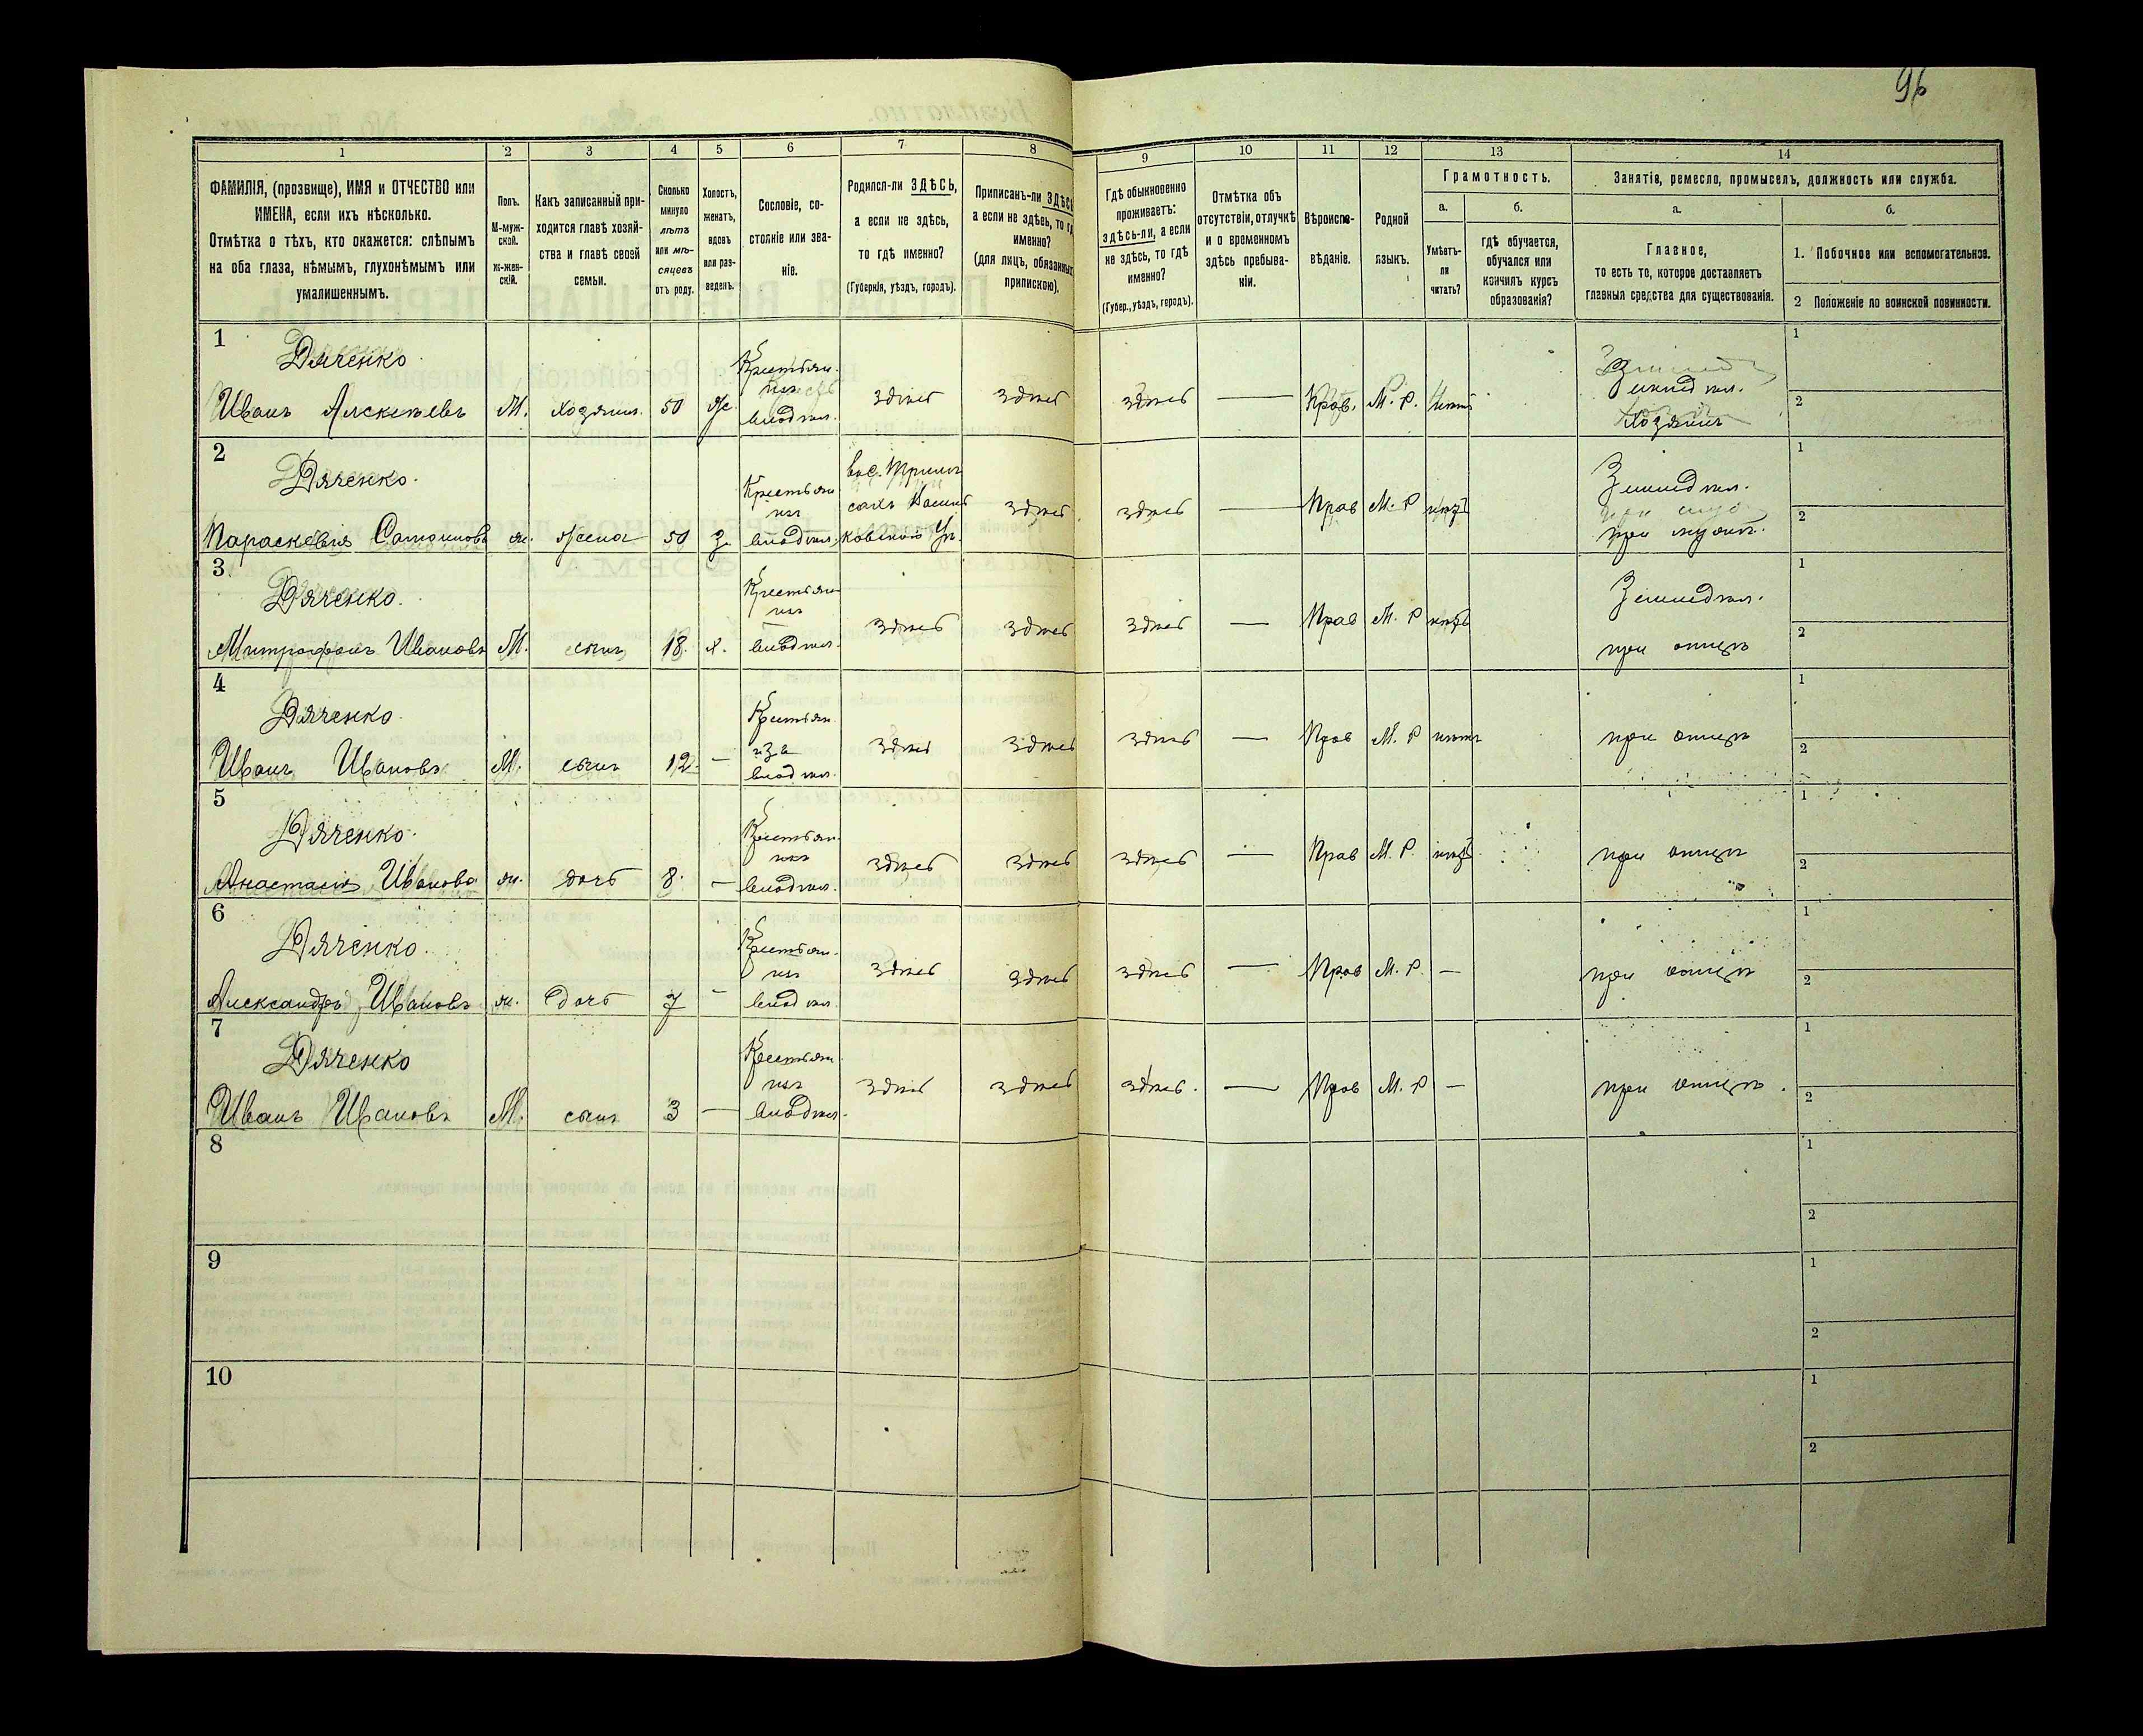 96
1 2 3 4 5 6 7 8 9 10 11 12 13 14
ФАМИЛІЯ, (прозвище), ИМЯ и ОТЧЕСТВО или
ИМЕНА, если ихъ нѣсколько.
Отмѣтка о тѣхъ, кто окажется: слѣпымъ
на оба глаза, нѣмымъ, глухонѣмымъ или
умалишеннымъ.
Полъ.
М-муж-
ской.
Ж-жен-
скій.
Какъ записанный при-
ходится главѣ хозяй-
ства и главѣ своей
семьи.
Сколько
минуло
лѣтъ
или мѣ-
сяцевъ
отъ роду.
Холостъ,
женатъ,
вдовъ
или раз-
веденъ.
Сословіе, со-
стояніе или зва-
ніе.
Родился-ли ЗДѢСЬ,
а если не здѣсь,
то гдѣ именно?
(Губернія, уѣздъ, городъ).
Приписанъ-ли ЗДѢСЬ
а если не здѣсь, то гд
именно?
(для лицъ, обязанных
припискою).
Гдѣ обыкновенно
проживаетъ:
здѣсь-ли, а если
не здѣсь, то гдѣ
именно?
(Губер., уѣздъ, городъ).
Отмѣтка объ
отсутствіи, отлучкѣ
и о временномъ
здѣсь пребыва-
ніи.
Вѣроиспо-
вѣданіе.
Родной
языкъ.
Грамотность.
а.
Умѣетъ-
ли
читать?
б.
гдѣ обучается,
обучался или
кончилъ курсъ
образованія?
Занятія, ремесло, промыселъ, должность или служба.
а.
Главное,
то есть то, которое доставляетъ
главныя средства для существованія.
б.
1. Побочное или вспомогательное.
2 Положеніе по воинской повинности.
1
Дяченко
Иванъ Алексѣевъ М. Хозяинъ 50 ж. Крестьян. изъ владѣл. здѣсь здѣсь здѣсь — Прав. М. Р. нѣтъ Земледѣл. Хозяинъ
1
2
2
Дяченко.
Параскевія ж. жена 50 з. Крестьян изъ владѣл. здѣсь здѣсь — Прав М. Р нѣтъ Земледѣл. при мужѣ.
1
2
3
Дяченко.
Митрофанъ Ивановъ М. сынъ 18. х. Крестьян изъ владѣл. здѣсь здѣсь здѣсь — Прав М. Р нѣтъ Земледѣл. при отцѣ
1
2
4
Дяченко.
Иванъ Ивановъ М. сынъ 12 — Крестьян. изъ владѣл. здѣсь здѣсь здѣсь — Прав М. Р нѣтъ при отцѣ
1
2
5
Дяченко.
Анастасія Иванова ж. дочь 8. — Крестьян. изъ владѣл. здѣсь здѣсь здѣсь — Прав М. Р. нѣтъ при отцѣ
1
2
6
Дяченко.
Александра Ивановъ ж. дочь 7 — Крестьян. изъ владѣл. здѣсь здѣсь здѣсь — Прав М. Р. — при отцѣ
1
2
7
Дяченко
Иванъ Ивановъ М. сынъ 3 — Крестьян. изъ владѣл. здѣсь здѣсь здѣсь. — Прав М. Р — при отцѣ.
1
2
8
1
2
9
1
2
10
1
2